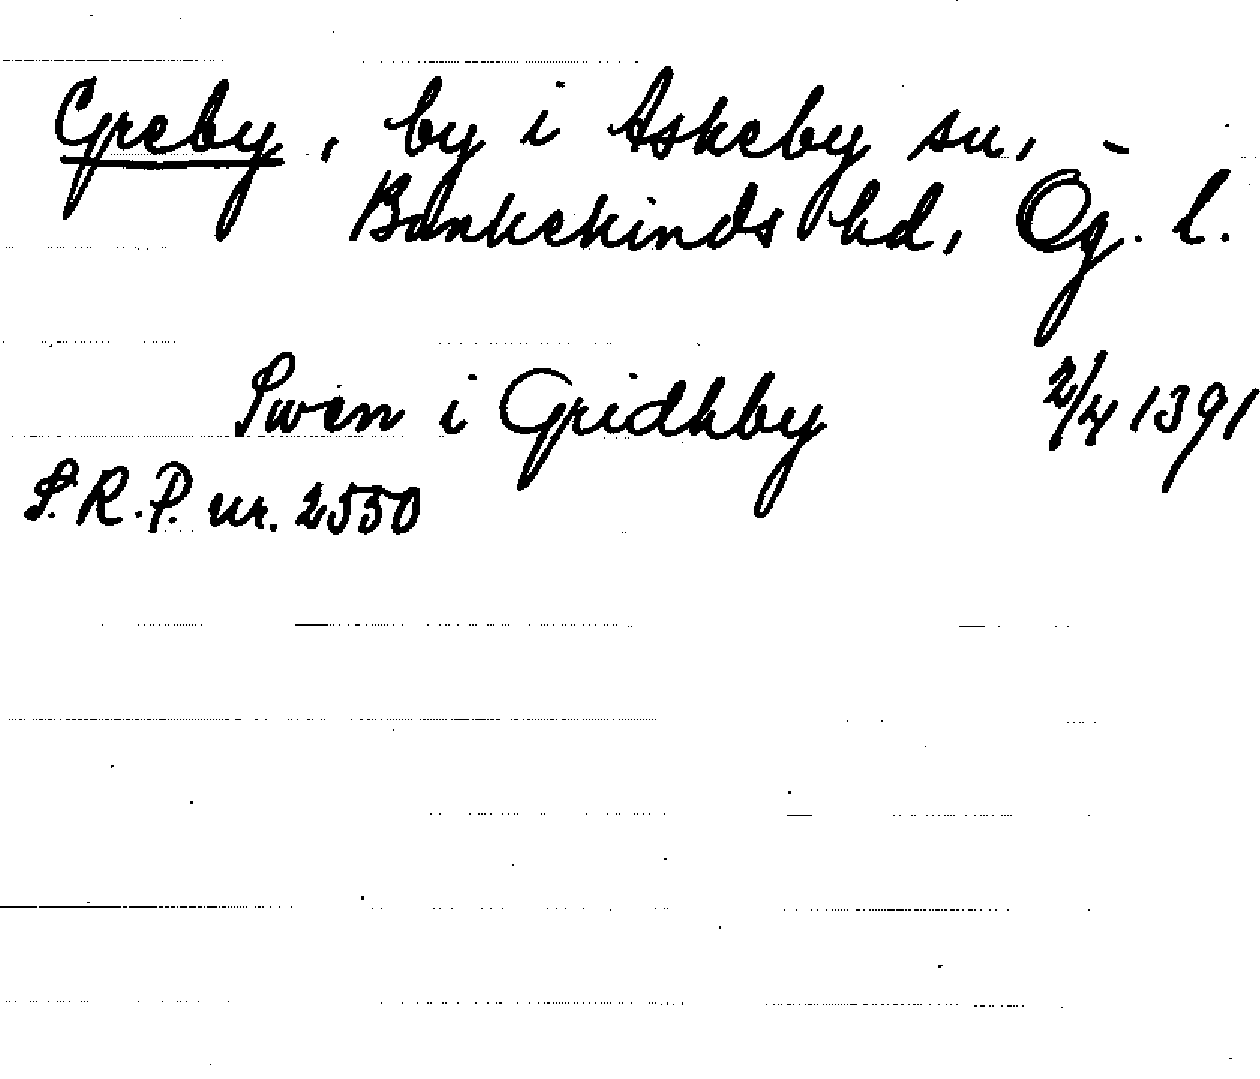 Greby, by i Askeby sn, -
Bankekinds hd, Ög. l.
Swen i Gridhby 2/4 1391
S.R.P. nr. 2550